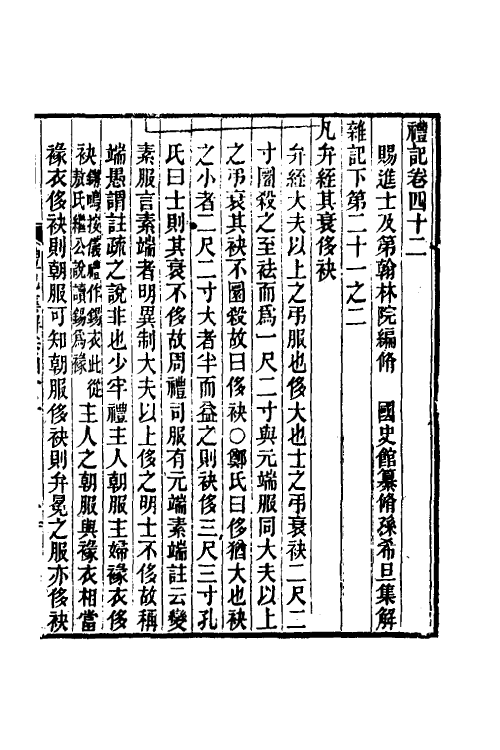 禮記卷四十二
賜進士及第翰林院編脩　國史館纂脩孫希旦集解
雜記下第二十一之二
凡弁絰其衰侈袂
弁絰大夫以上之弔服也侈大也士之弔衰袂二尺二
寸圜殺之至袪而爲一尺二寸與元端服同大夫以上
之弔衰其袂不圜殺故曰侈袂○鄭氏曰侈猶大也袂
之小者二尺二寸大者半而益之則袂侈三尺三寸孔
氏曰士則其衰不侈故周禮司服有元端素端註云變
素服言素端者明異制大夫以上侈之明士不侈故稱
端愚謂註疏之說非也少牢禮主人朝服主婦褖衣侈
袂鏘鳴按儀禮作錫衣此從敖氏繼公說讀錫爲褖主人之朝服與褖衣相當
褖衣侈袂則朝服可知朝服侈袂則弁冕之服亦侈袂